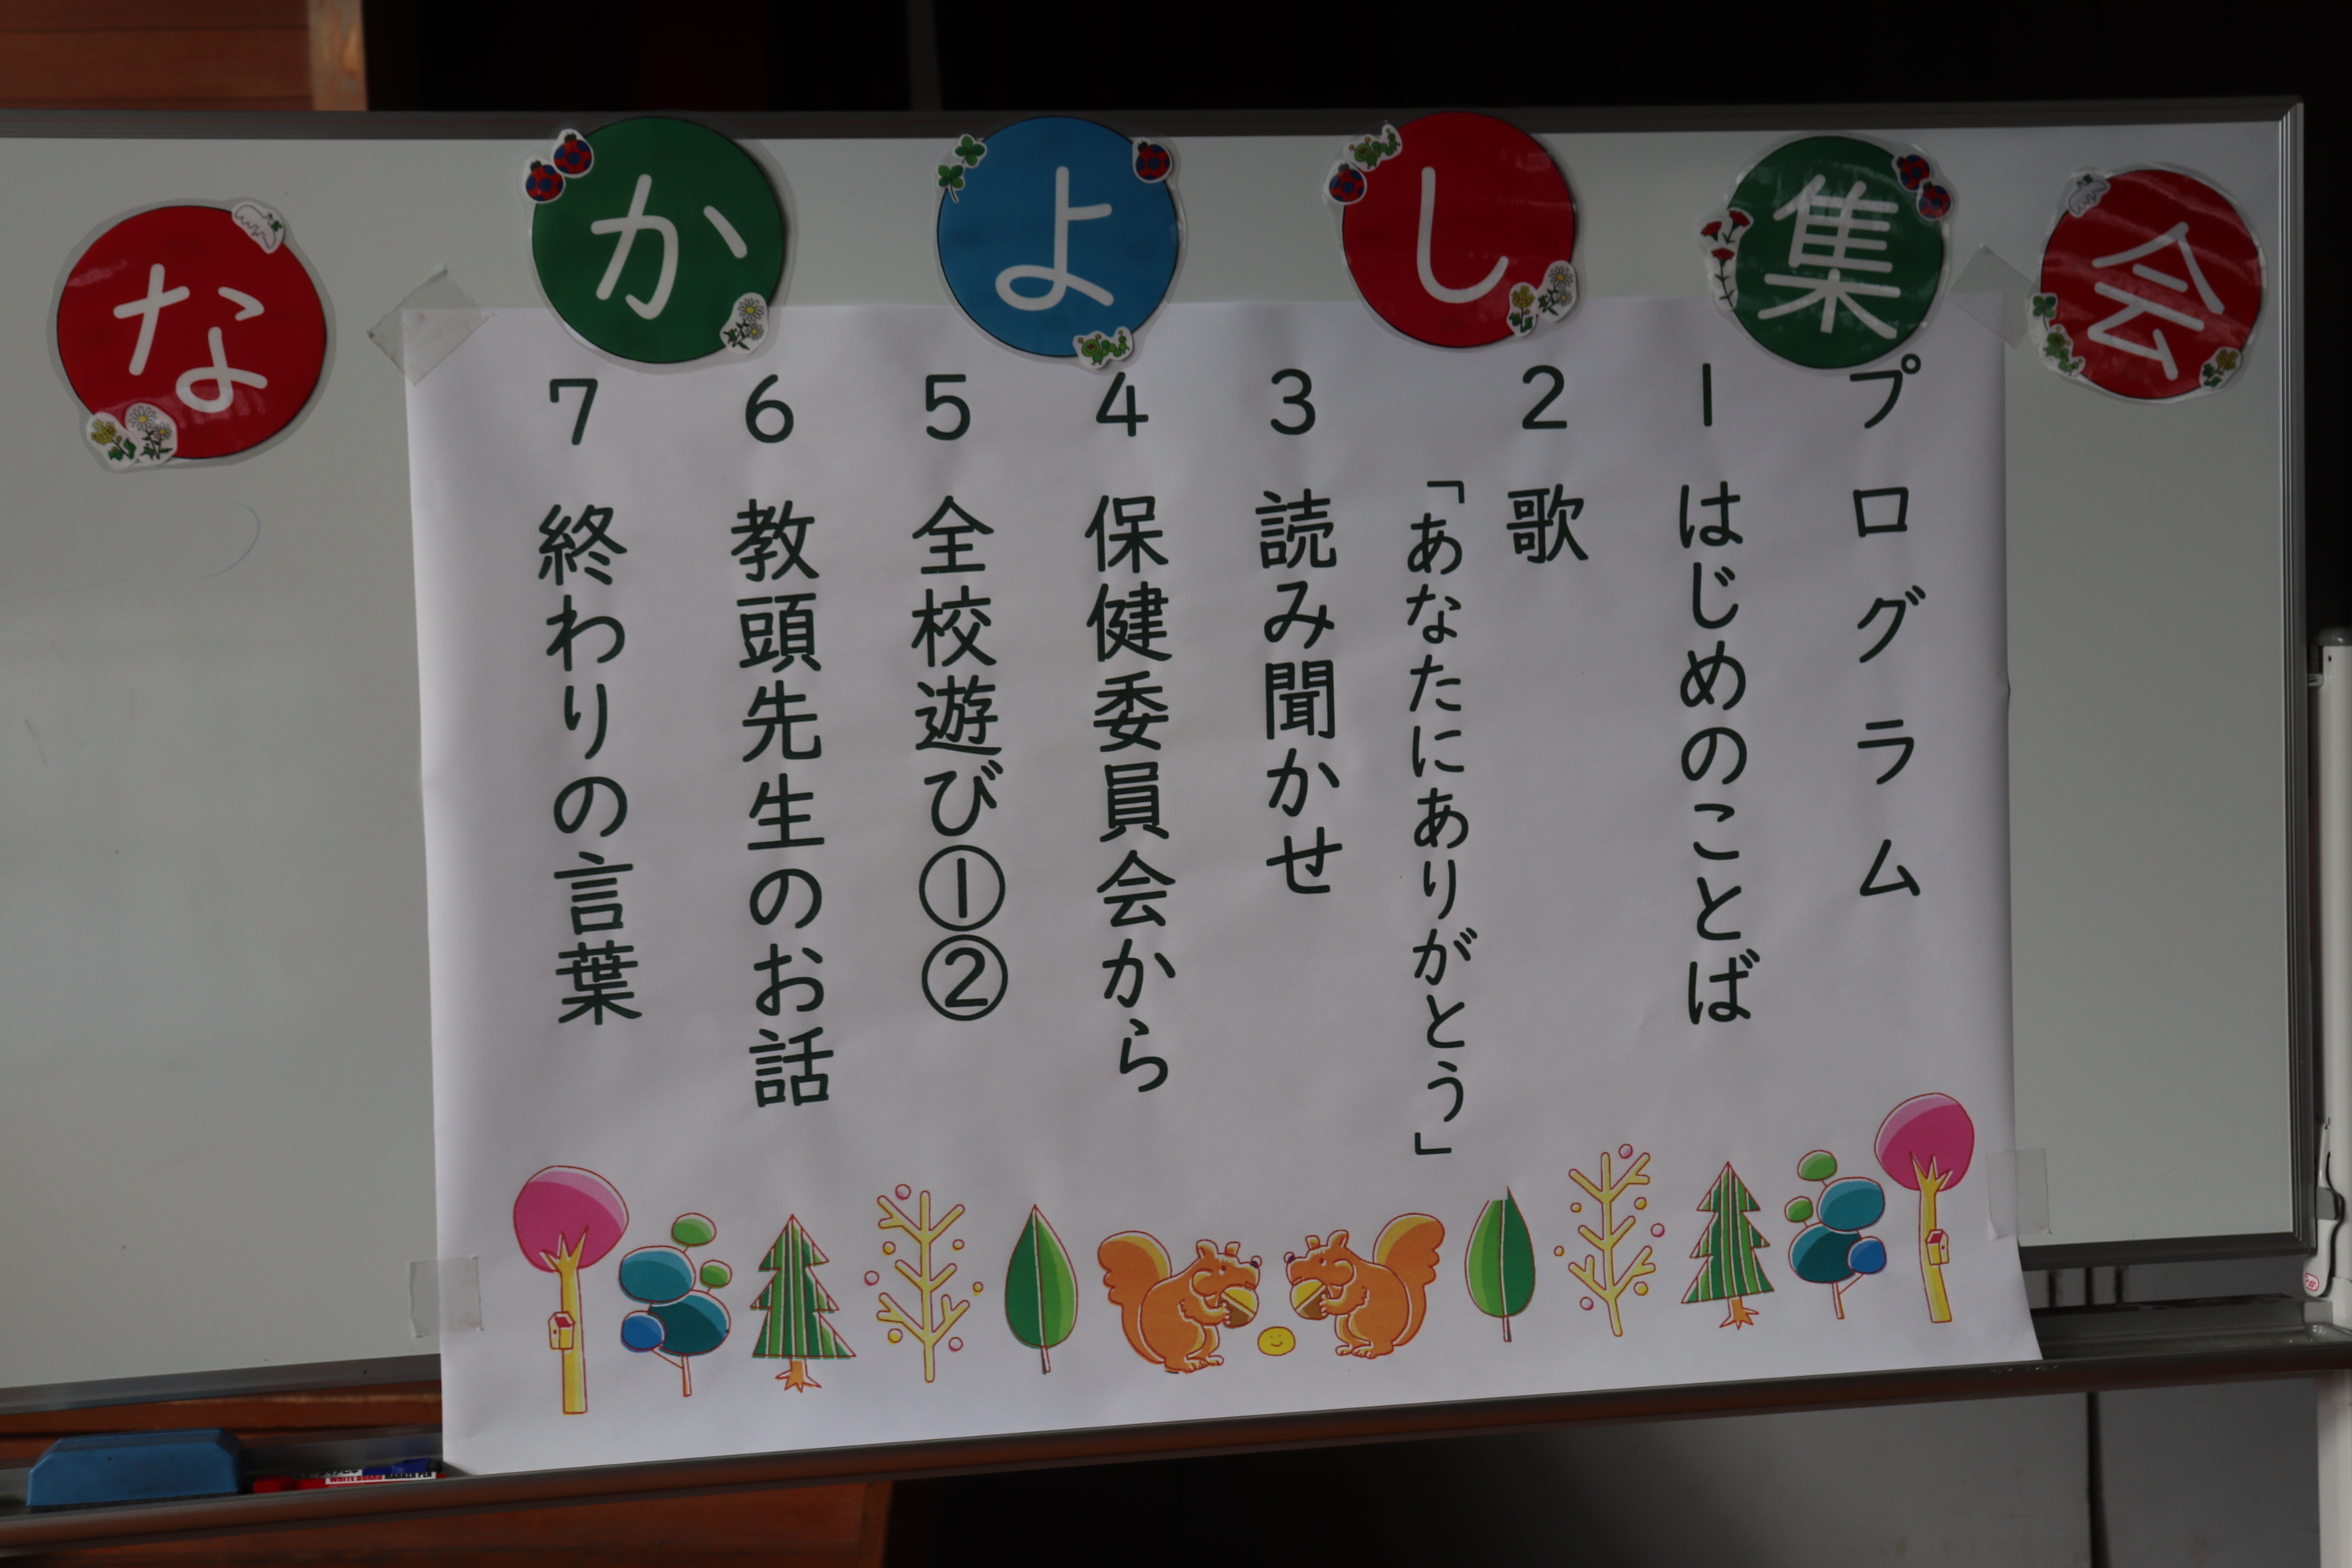 なかよし集会
プログラム
1 はじめのことば
2 歌
「あなたにありがとう」
3 読み聞かせ
4 保健委員会から
5 全校遊び①②
6 教頭先生のお話
7 終わりの言葉
WHITE BOARD MARKER PEN